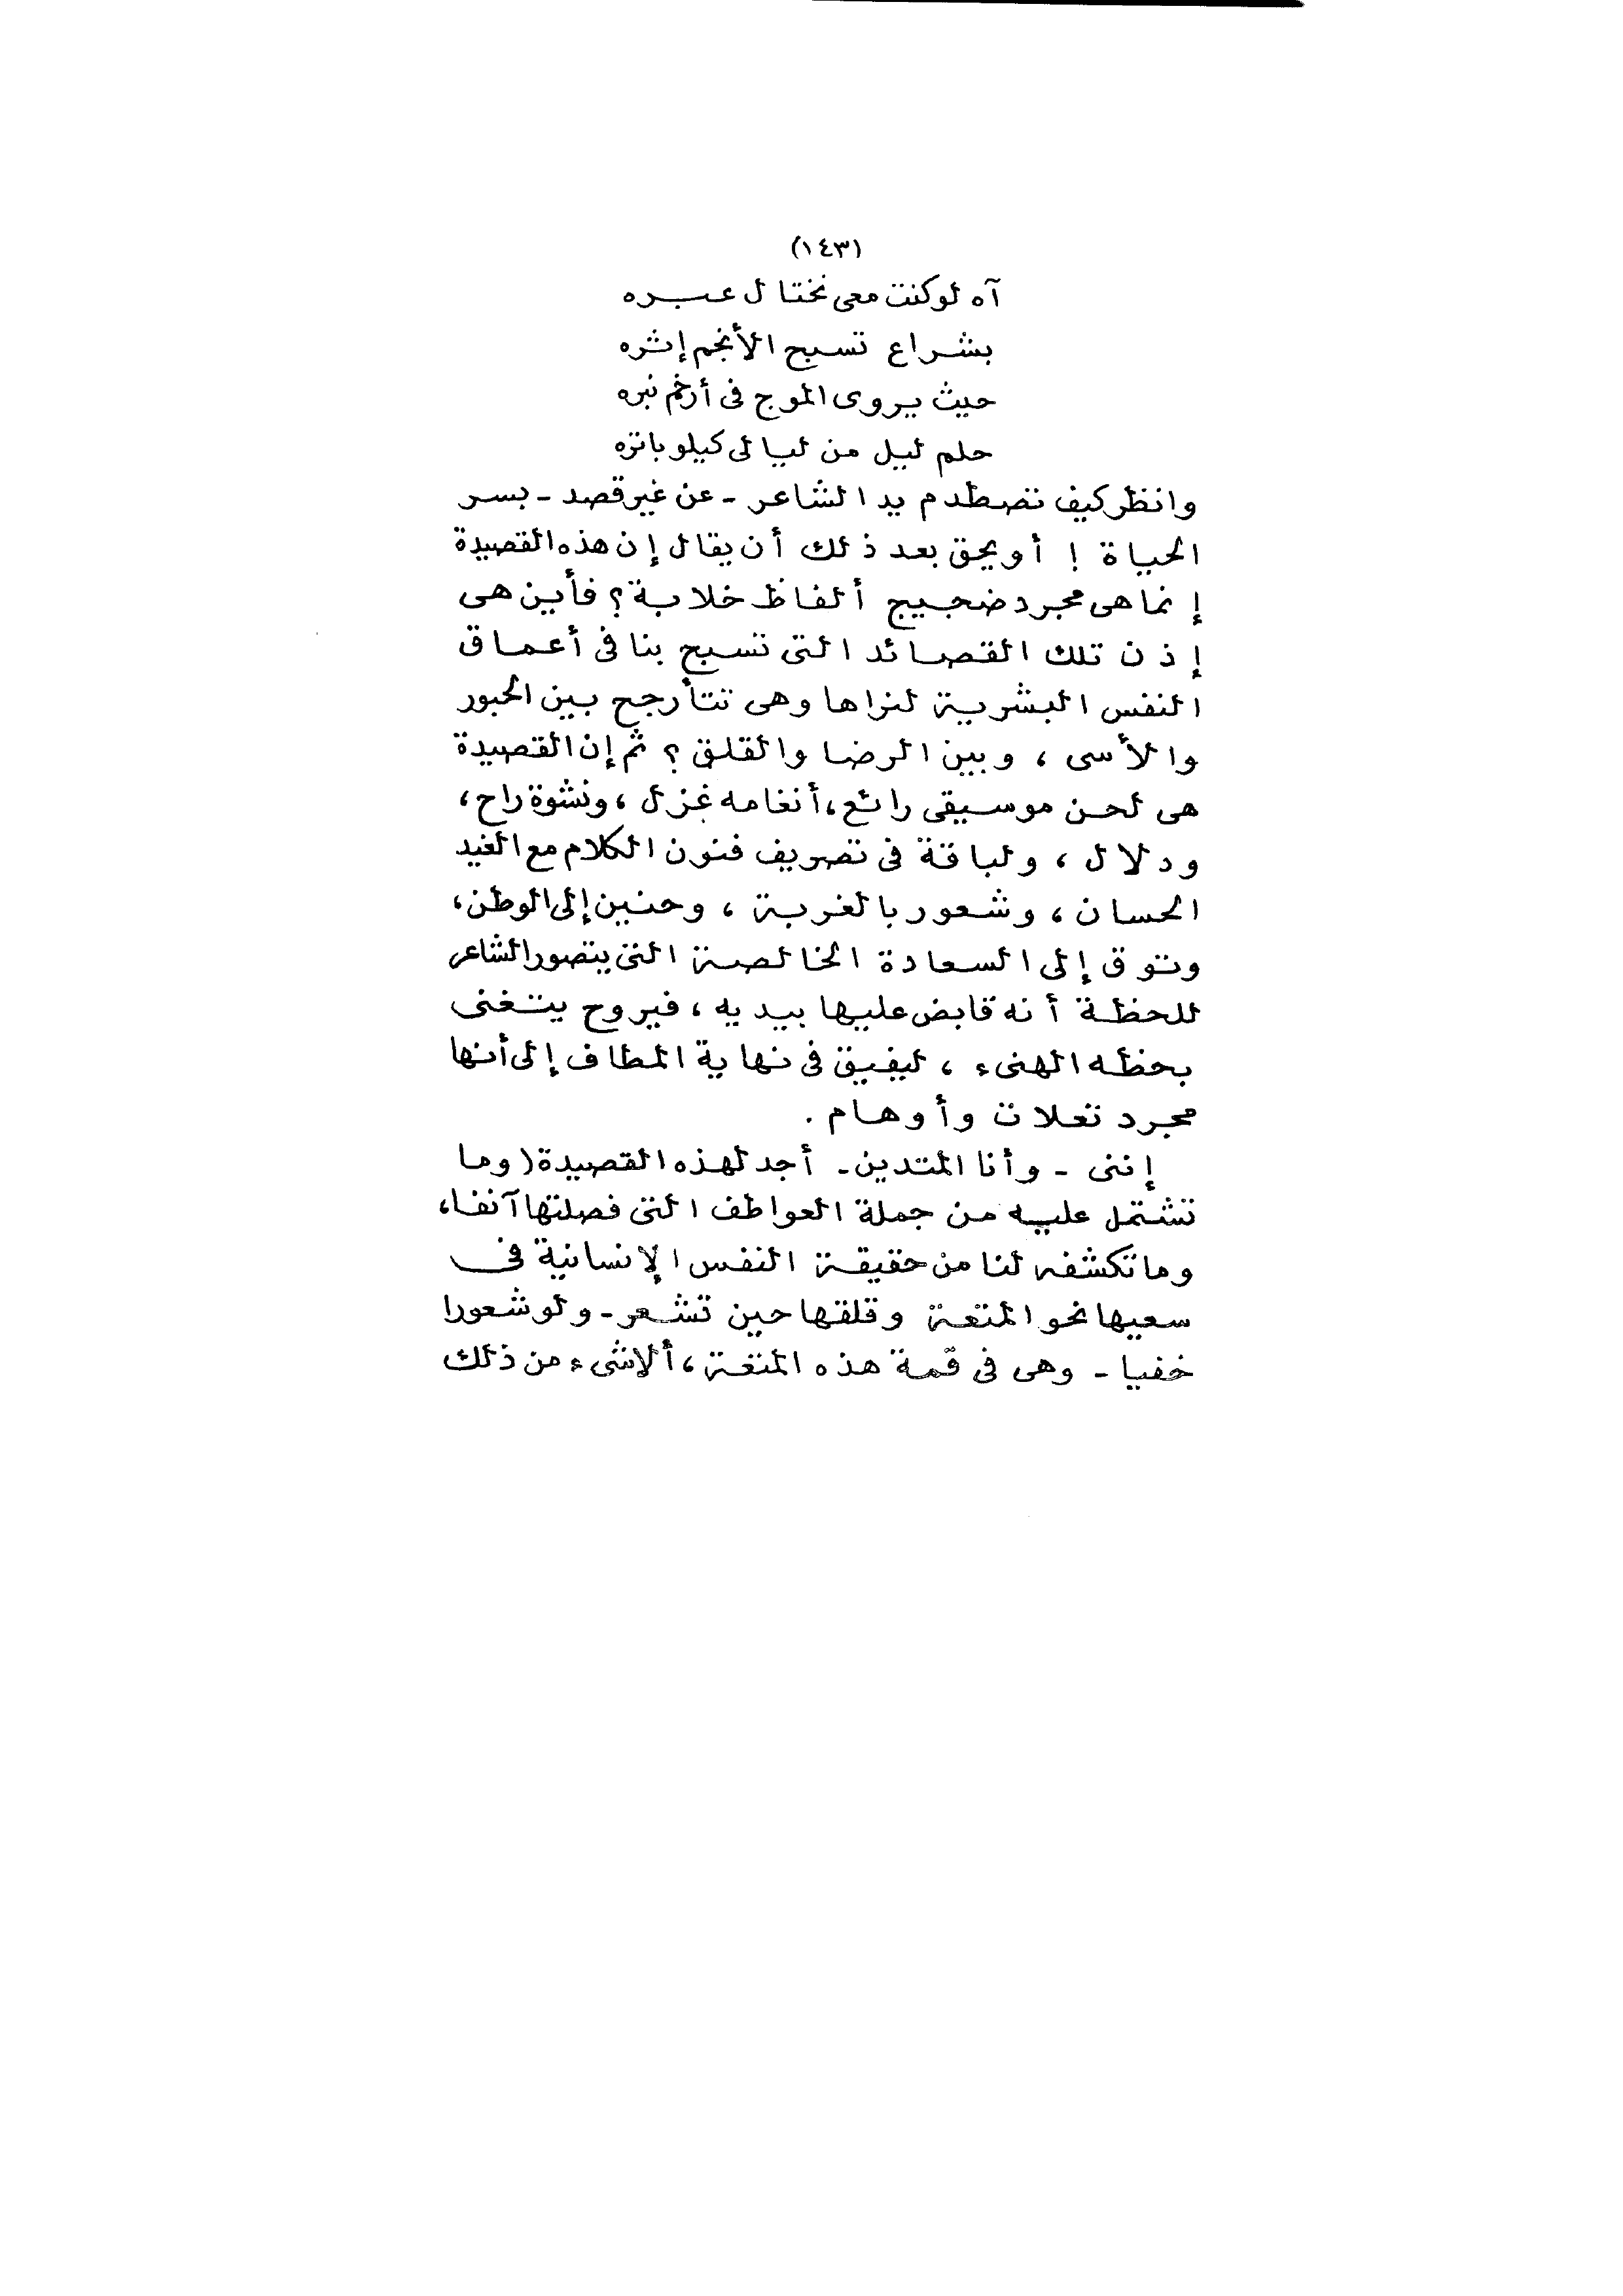 (١٤٣)
آه لو كنت معى نختال عبره
بشراع تسبح الأنجم إثره
حيث يروى الموج فى أرخم نبره
حلم ليل من ليالى كيلوباتره
وانظر كيف تصطدم يد الشاعر - عن غير قصد - بسر
الحياة ! أو يحق بعد ذلك أن يقال إن هذه القصيدة
إنما هى مجرد ضجيج ألفاظ خلابة ؟ فأين هى
إذن تلك القصائد التى تسبح بنا فى أعماق
النفس البشرية لنراها وهى تتأرجح بين الحبور
والأسى ، وبين الرضا والقلق ؟ ثم إن القصيدة
هى لحن موسيقى رائع ، أنغامه غزل ، ونشوة راح ،
ودلال ، ولباقة فى تصريف فنون الكلام مع الغيد
الحسان ، وشعور بالغربة ، وحنين إلى الوطن ،
وتوق إلى السعادة الخالصة التى يتصور الشاعر
للحظة أنه قابض عليها بيديه ، فيروح يتغنى
بحظه الهنىء ، ليفيق فى نهاية المطاف إلى أنها
مجرد تعلات وأوهام .
إننى - وأنا المتدين - أجد لهذه القصيدة ( وما
تشتمل عليه من جملة العواطف التى فصلتها آنفا ،
وما تكشفه لنا من حقيقة النفس الإنسانية فى
سعيها نحو المتعة وقلقها حين تشعر - ولو شعورا
خفيا - وهى فى قمة هذه المتعة ، ألا شىء من ذلك